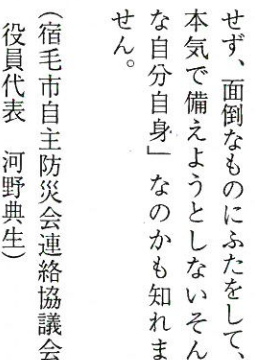 せず、面倒なものにふたをして、
本気で備えようとしないそん
な自分自身」なのかも知れま
せん。
(宿毛市自主防災会連絡協議会
役員代表　河野典生)